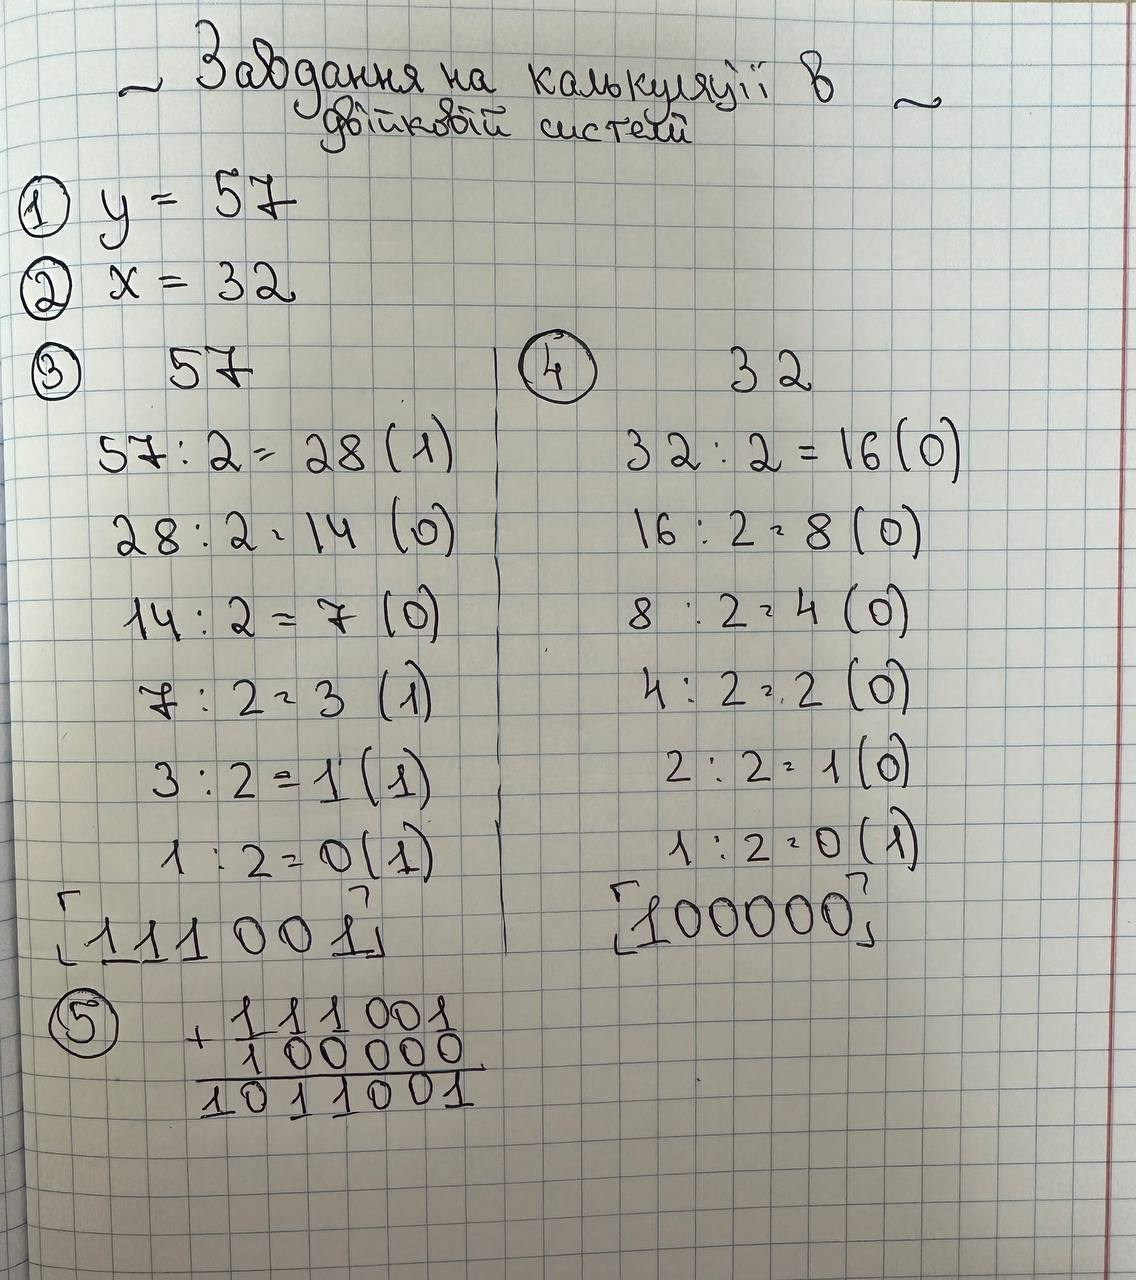 ~ Завдання на калькуляції в ~
двійковій системі
① y = 57
② x = 32
③ 57
57 : 2 = 28 (1)
28 : 2 = 14 (0)
14 : 2 = 7 (0)
7 : 2 = 3 (1)
3 : 2 = 1 (1)
1 : 2 = 0 (1)
[111001]
④ 32
32 : 2 = 16 (0)
16 : 2 = 8 (0)
8 : 2 = 4 (0)
4 : 2 = 2 (0)
2 : 2 = 1 (0)
1 : 2 = 0 (1)
[100000]
⑤ + 111001
100000
1011001